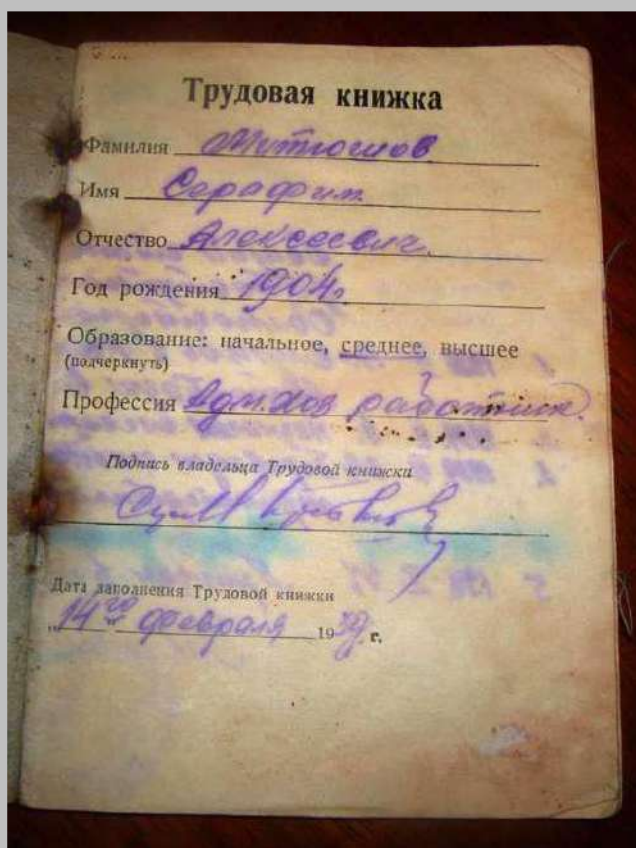 Трудовая книжка
Фамилия Митюшов
Имя Серафим
Отчество Алексеевич.
Год рождения 1904г.
Образование: начальное, среднее, высшее
(подчеркнуть)
Профессия Адм. хоз работник.
Подпись владельца Трудовой книжки
Дата заполнения Трудовой книжки
„14го" февраля 1939 г.